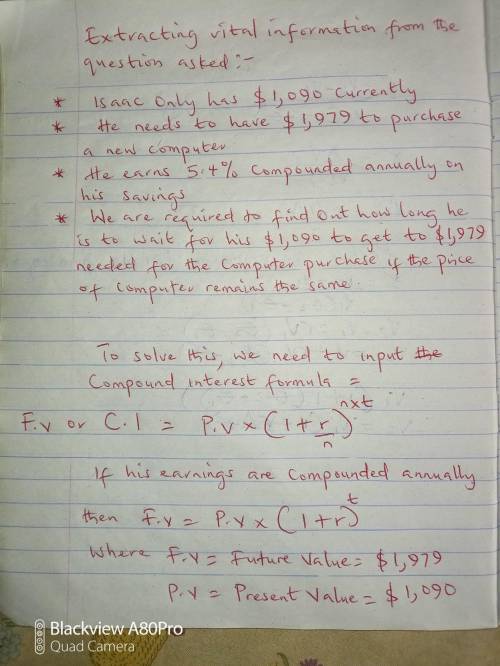 Extracting vital information from the
question asked:-
* Isaac Only has $1,090 currently
* He needs to have $1,979 to purchase
a new computer
* He earns 5.4% Compounded annually on
his savings
* We are required to find out how long he
is to wait for his $1,090 to get to $1,979
needed for the Computer purchase if the price
of Computer remains the same.
To solve this, we need to input the
Compound interest formula =
F.V or C.I = P.V x (1 + r/n)^nxt
If his earnings are Compounded annually
then F.V = P.V x (1+r)^t
Where F.V = Future Value = $1,979
P.V = Present Value = $1,090
Blackview A80Pro
Quad Camera